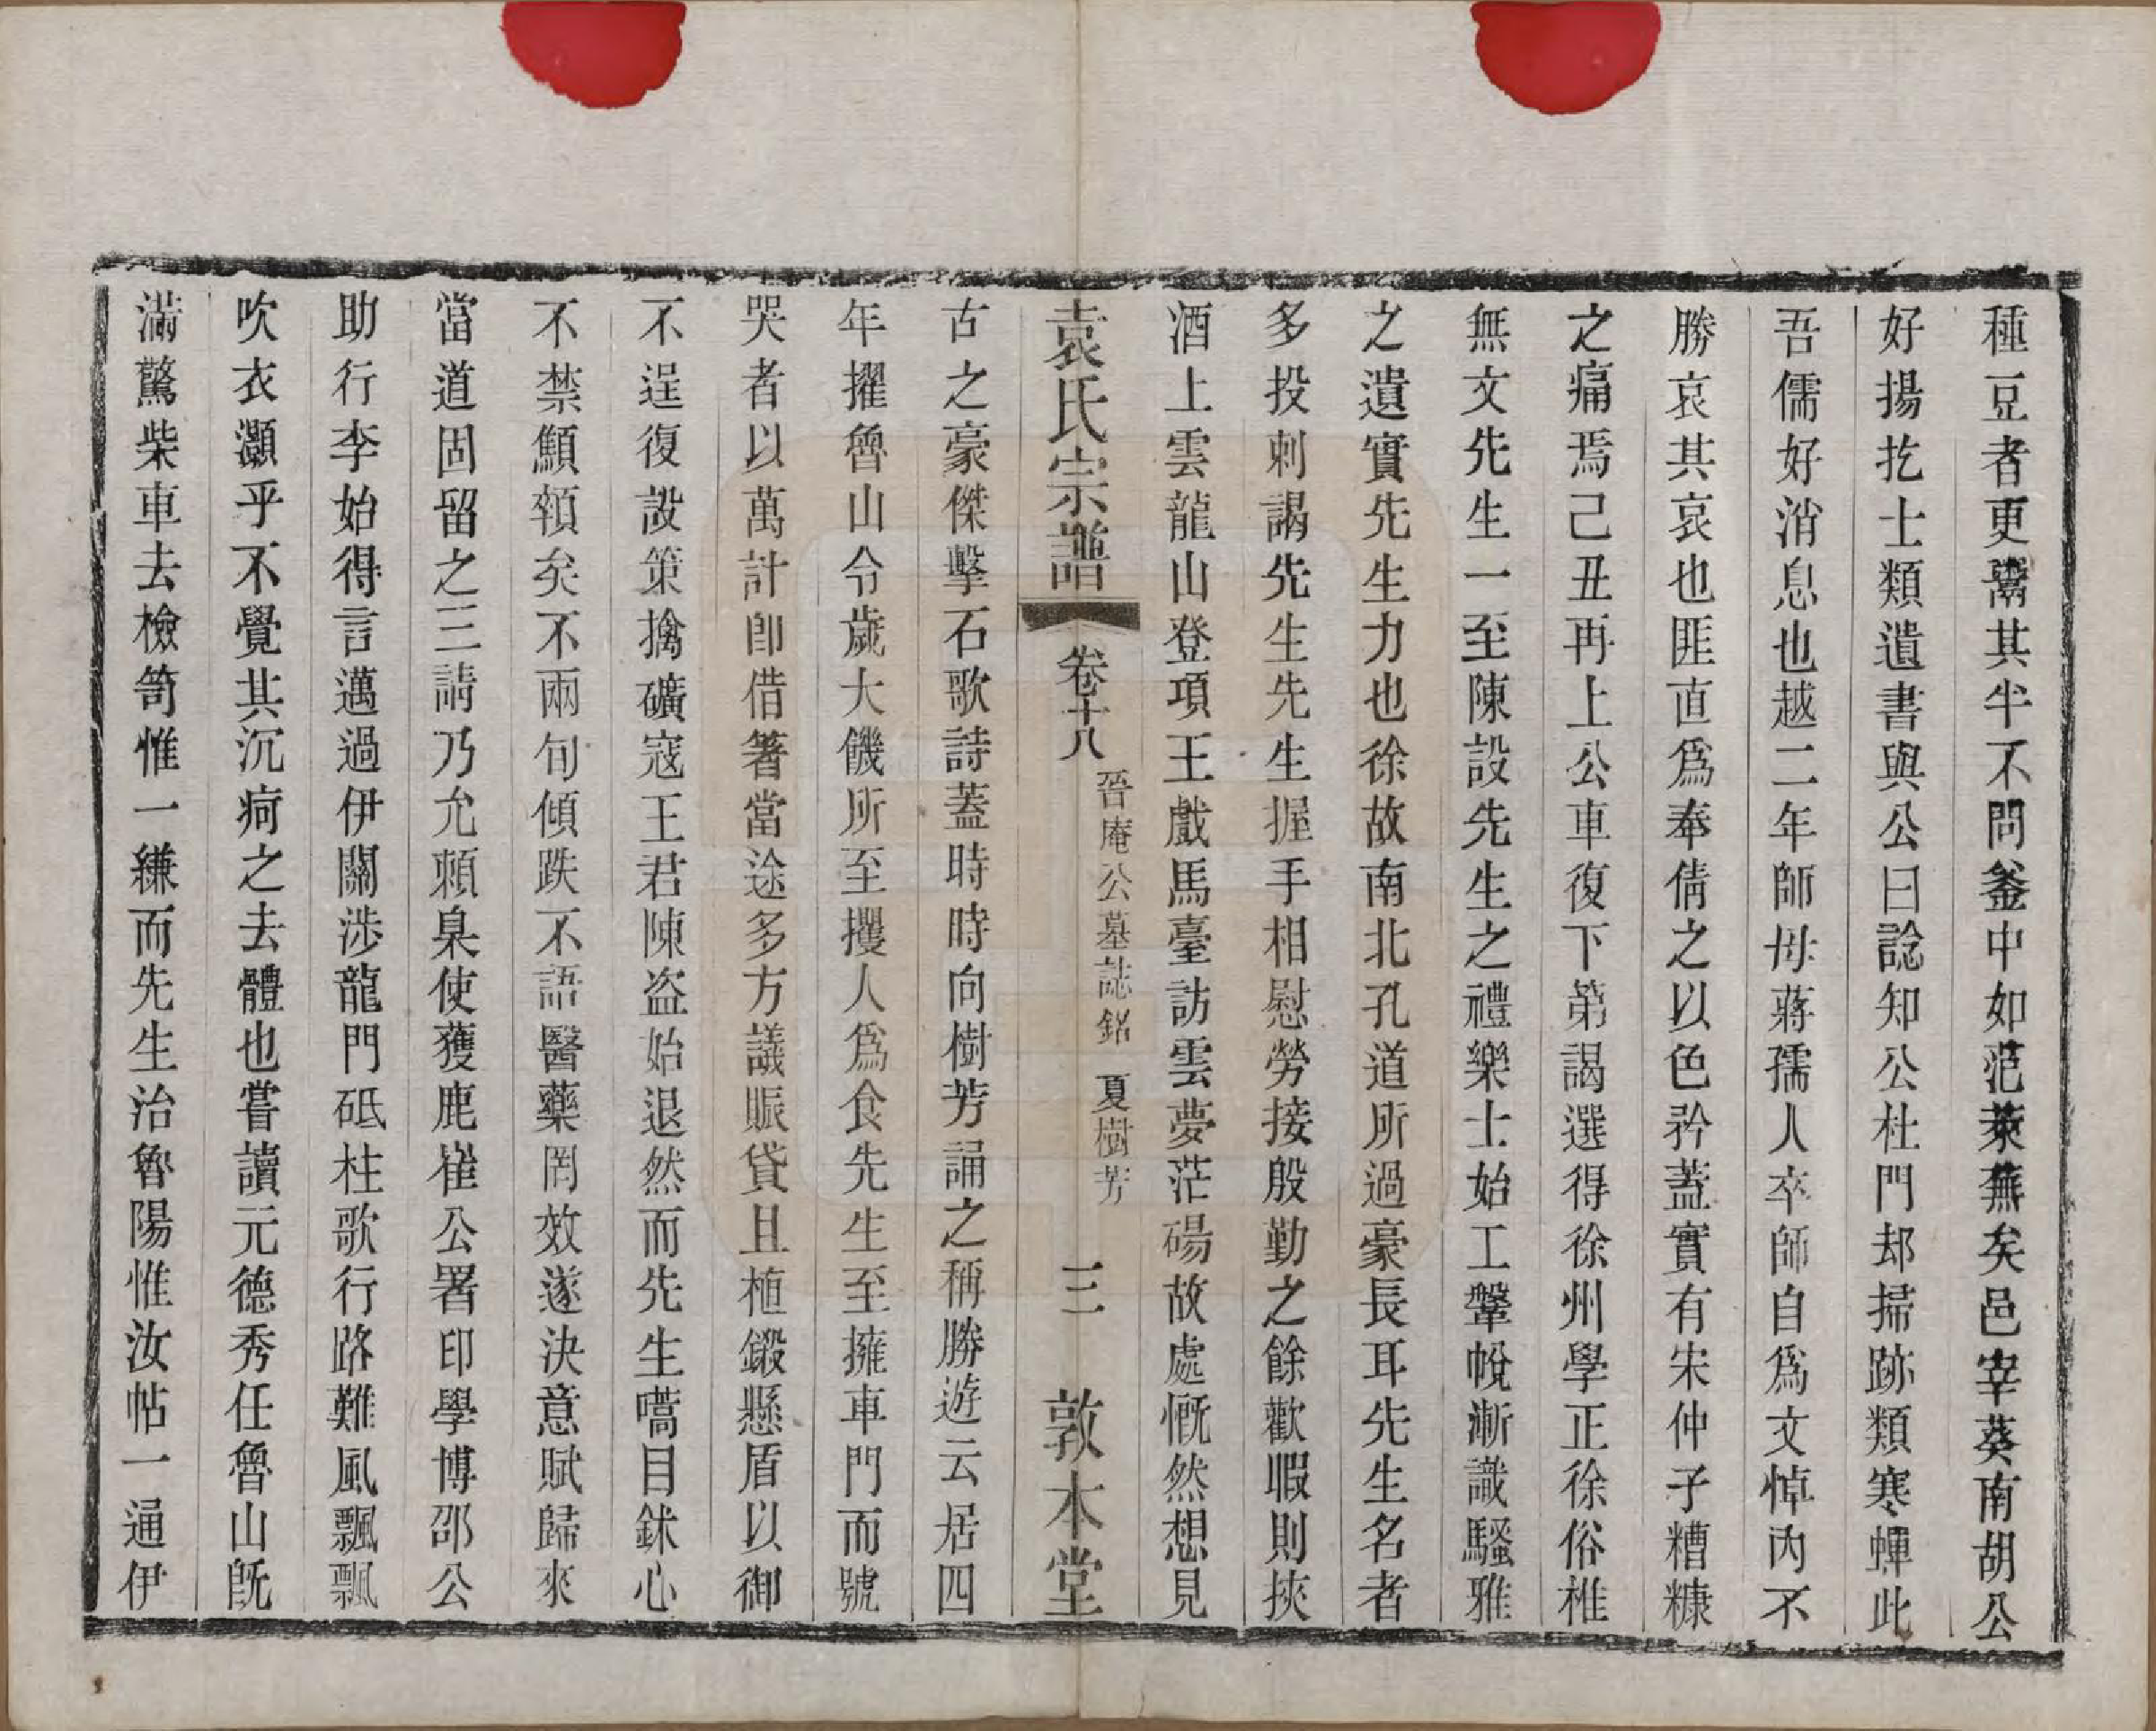 種豆者更鬻其半不問釜中如范萊蕪矣邑宰葵南胡公
好揚扢士類遺書與公曰諗知公杜門却掃跡類寒蟬此
吾儒好消息也越二年師母蔣孺人卒師自爲文悼丙不
勝哀其哀也匪直爲奉倩之以色矜蓋實有宋仲子糟糠
之痛焉己丑再上公車復下第謁選得徐州學正徐俗椎
無文先生一至陳設先生之禮樂士始工鞶帨漸識騷雅
之遺實先生力也徐故南北孔道所過豪長耳先生名者
多投刺謁先生先生握手相慰勞接殷勤之餘歡暇則挾
酒上雲龍山登項王戲馬臺訪雲夢茫碭故處慨然想見
袁氏宗譜 卷十八 晉庵公墓誌銘 夏樹芳 三 敦本堂
古之豪傑擊石歌詩蓋時時向樹芳誦之稱勝遊云居四
年擢魯山令歲大饑所至攫人爲食先生至擁車門而號
哭者以萬計卽借箸當途多方議賑貸且植鍛懸盾以御
不逞復設策擒礦寇王君陳盜始退然而先生嚆目鉥心
不禁顦顇矣不兩旬傾跌不語醫藥罔效遂決意賦歸來
當道固留之三請乃允賴臬使獲鹿崔公署印學博邵公
助行李始得言邁過伊闕涉龍門砥柱歌行路難風飄飄
吹衣灝乎不覺其沉疴之去體也嘗讀元德秀任魯山旣
滿驚柴車去檢笥惟一縑而先生治魯陽惟汝帖一通伊